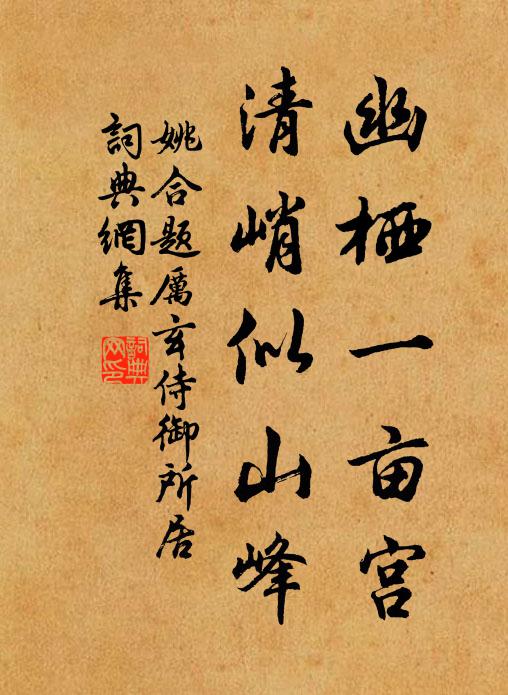 幽栖一亩宫
清峭似山峰
姚合题厲玄侍御所居
詞典網集
詞典网印